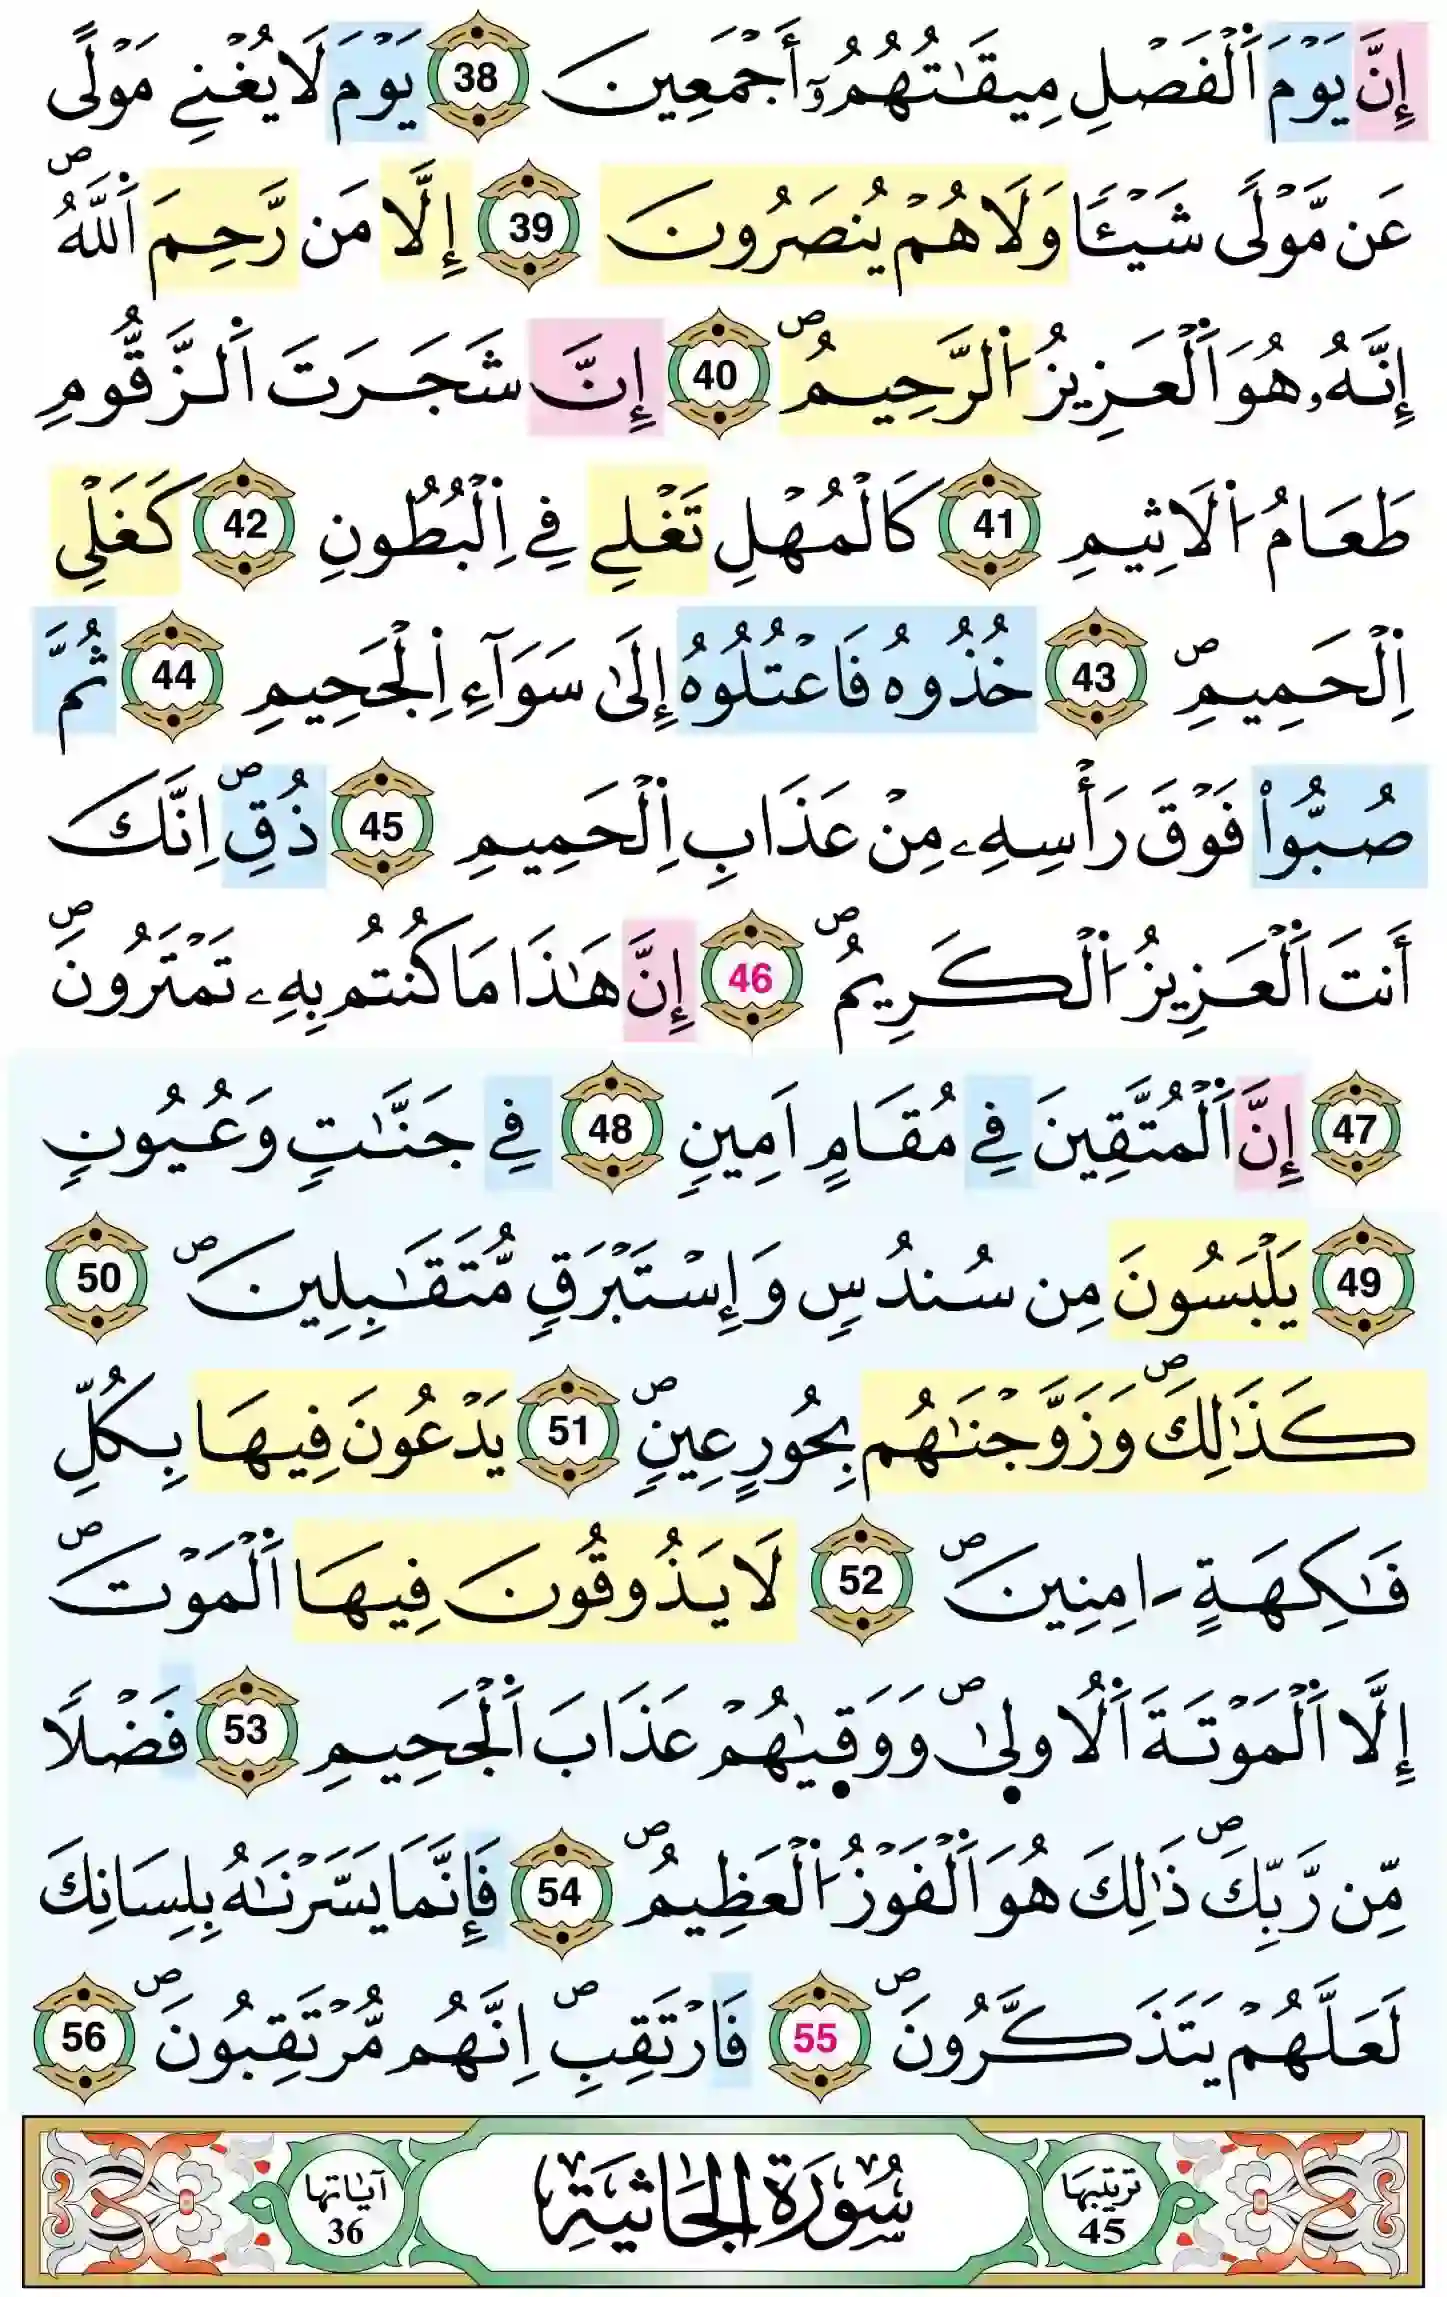 إِنَّ يَوْمَ اَ۬لْفَصْلِ مِيقَٰتُهُمُۥٓ أَجْمَعِينَ 38 يَوْمَ لَا يُغْنِے مَوْلًى
عَن مَّوْلًى شَيْـٔاً وَلَا هُمْ يُنصَرُونَ 39 إِلَّا مَن رَّحِمَ اَ۬للَّهُۖ
إِنَّهُۥ هُوَ اَ۬لْعَزِيزُ اُ۬لرَّحِيمُۖ 40 إِنَّ شَجَرَتَ اَ۬لزَّقُّومِ
طَعَامُ اُ۬لَاثِيمِ 41 كَالْمُهْلِ تَغْلِے فِے اِ۬لْبُطُونِ 42 كَغَلْيِ
اِ۬لْحَمِيمِۖ 43 خُذُوهُ فَاعْتُلُوهُ إِلَىٰ سَوَآءِ اِ۬لْجَحِيمِ 44 ثُمَّ
صُبُّواْ فَوْقَ رَأْسِهِۦ مِنْ عَذَابِ اِ۬لْحَمِيمِ 45 ذُقِۖ اِنَّكَ
أَنتَ اَ۬لْعَزِيزُ اُ۬لْكَرِيمُۖ 46 إِنَّ هَٰذَا مَا كُنتُم بِهِۦ تَمْتَرُونَۖ
47 إِنَّ اَ۬لْمُتَّقِينَ فِے مُقَامٍ اَمِينٖ 48 فِے جَنَّٰتٖ وَعُيُونٖ
49 يَلْبَسُونَ مِن سُندُسٖ وَإِسْتَبْرَقٖ مُّتَقَٰبِلِينَۖ 50
كَذَٰلِكَۖ وَزَوَّجْنَٰهُم بِحُورٍ عِينٖۖ 51 يَدْعُونَ فِيهَا بِكُلِّ
فَٰكِهَةٍ اٰمِنِينَۖ 52 لَا يَذُوقُونَ فِيهَا اَ۬لْمَوْتَۖ
إِلَّا اَ۬لْمَوْتَةَ اَ۬لُاولٜىٰۖ وَوَقٜيٰهُمْ عَذَابَ اَ۬لْجَحِيمِ 53 فَضْلاً
مِّن رَّبِّكَۖ ذَٰلِكَ هُوَ اَ۬لْفَوْزُ اُ۬لْعَظِيمُۖ 54 فَإِنَّمَا يَسَّرْنَٰهُ بِلِسَانِكَ
لَعَلَّهُمْ يَتَذَكَّرُونَۖ 55 فَارْتَقِبِۖ اِنَّهُم مُّرْتَقِبُونَۖ 56
ترتيبها 45 سُورَةُ الجَاثِيَةِ آياتها 36